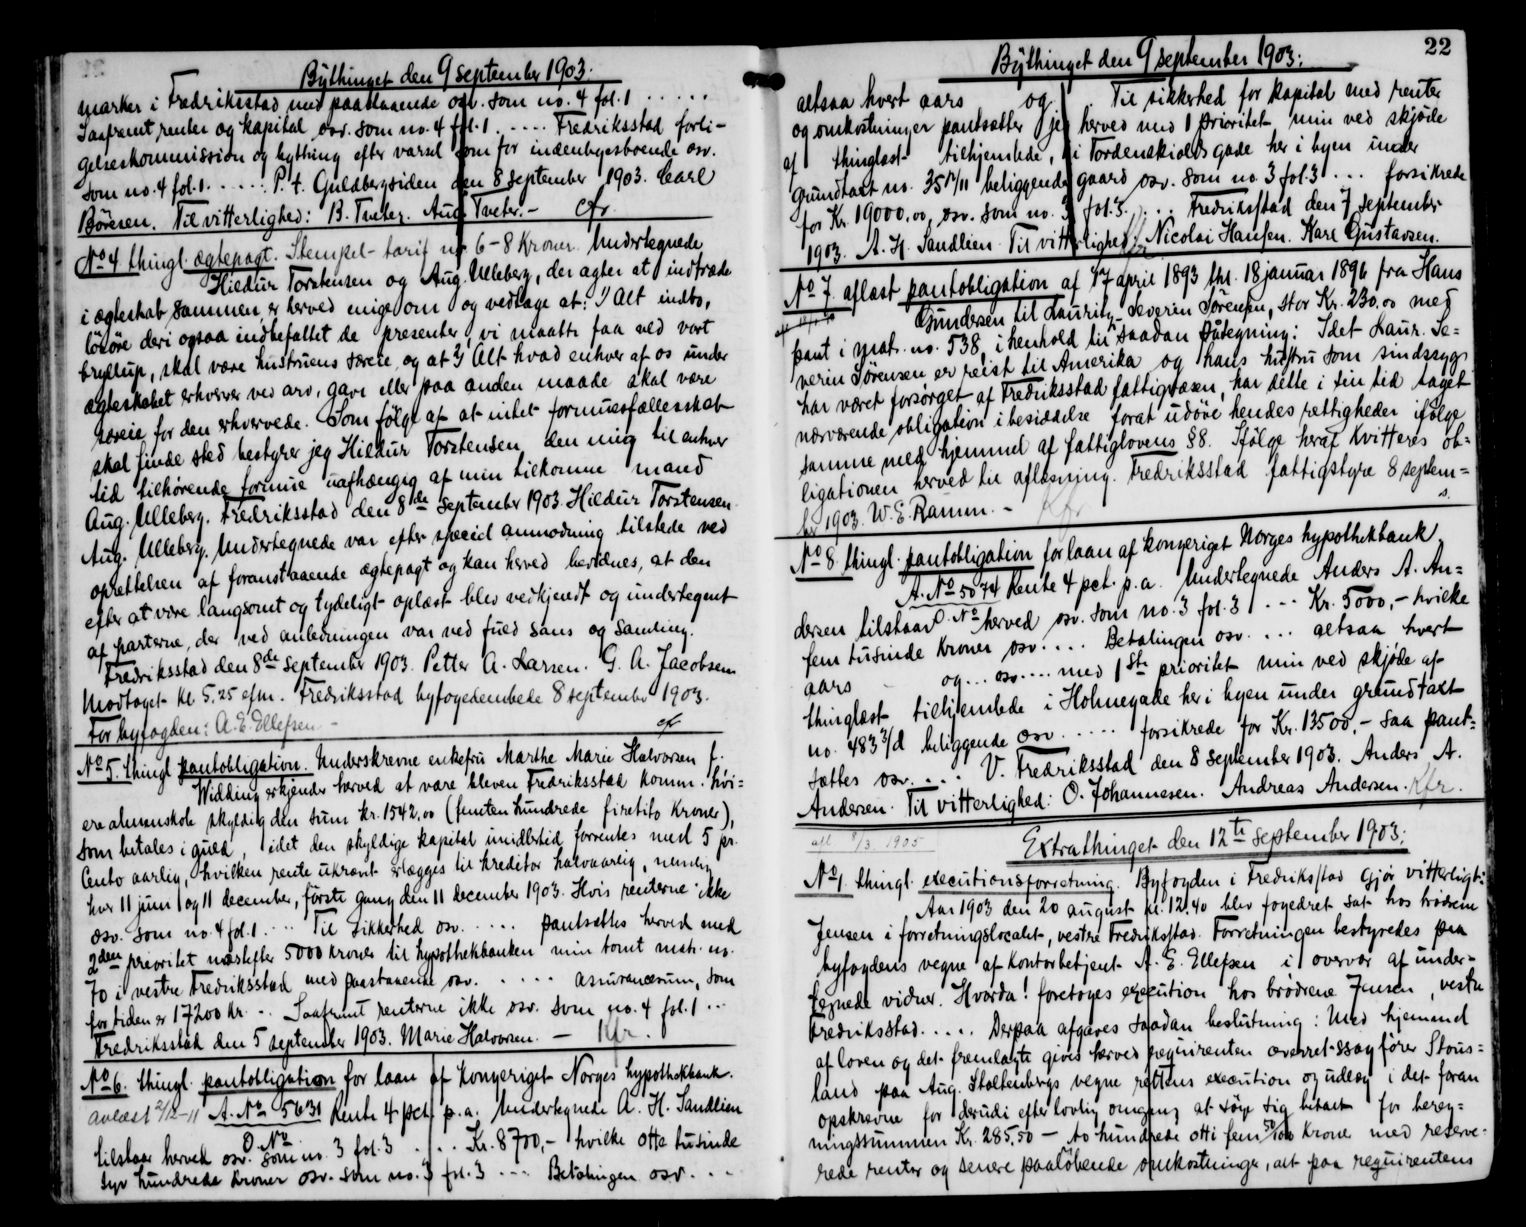 Bythinget den 9 september 1903:
marker i Fredriksstad med paastaaende osv. som no. 4 fol. 1 .....
Saafremt renter og kapital osv. som no. 4 fol. 1 .... Fredriksstad forli-
gelseskommission og bything efter varsel som for indenbyesboende osv.
som no. 4 fol. 1 ..... P. t. Guldbergsiden den 8 september 1903. Carl
Börresen. Til vitterlighed: B. Tveter. Aug. Tveter. - cfr.
No 4 thingl. ægtepagt. Stempel-tarif no 6 - 8 Kroner. Undertegnede
Hildur Torstensen og Aug. Ulleberg, der agter at indtræde
i ægteskab sammen, er herved enige om og vedtage at: 1) Alt indbo,
lösöre deri ogsaa indbefattet de presenter, vi maatte faa ved vort
bryllup, skal være hustruens særeie, og at 2) Alt hvad enhver af os under
ægteskabet erhverver ved arv, gave eller paa anden maade skal være
særeie for den erhvervede. Som fölge af at intet formuesfællesskab
skal finde sted bestyrer jeg Hildur Torstensen den mig til enhver
tid tilhörende formue uafhængig af min tilkomne mand
Aug. Ulleberg. Fredriksstad den 8de september 1903. Hildur Torstensen.
Aug. Ulleberg. Undertegnede var efter speciel anmodning tilstede ved
oprettelsen af foranstaaende ægtepagt og kan herved bevidnes, at den
efter at være langsomt og tydeligt oplæst blev vedkjendt og undertegnet
af parterne, der ved anledningen var ved fuld sans og samling.
Fredriksstad den 8de september 1903. Petter A. Larsen. G. A. Jacobsen
Modtaget kl. 5.25 efm. Fredriksstad byfogedembede 8 september 1903.
For byfogden: A. E. Ellefsen - cfr
No 5. thingl pantobligation. Underskrevne enkefru Marthe Marie Halvorsen f.
Widding erkjender herved at være bleven Fredriksstad komm. höi-
ere almenskole skyldig den sum kr. 1542,00 (femten hundrede firetito Kroner),
som betales i guld, idet den skyldige kapital imidlertid forrentes med 5 pr.
Cento aarlig, hvilken rente ukrævet erlægges til kreditor halvaarlig, nemlig
hver 11 juni og 11 december, förste gang den 11 december 1903. Hvis renterne ikke
osv. som no. 4 fol. 1 ... Til sikkerhed osv. ..... pantsættes herved med
2den prioritet næstefter 5000 kroner til hypothekbanken min tomt matr. no.
70 i vestre Fredriksstad med paastaaende osv. ..... assurancesum, som
for tiden er 17200 Kr. .. Saafremt renterne ikke osv. som no. 4 fol. 1 ...
Fredriksstad den 5 september 1903. Marie Halvorsen. - Kfr.
No 6. thingl. pantobligation for laan af kongeriget Norges hypothekbank.
avlæst 2/12-11 A. No 5631 Rente 4 pct. p. a. Undertegnede A. H. Sandlien
O. No
tilstaar herved osv. som no. 3 fol. 3 .... Kr. 8700,- hvilke otte tusinde
syv hundrede kroner osv. som no. 3 fol. 3 ... Betalingen osv. ...
22
Bythinget den 9 september 1903:
altsaa hvert aars og . Til sikkerhed for kapital med renter
og omkostninger pantsætter jeg herved med 1 prioritet min ved skjöde
af thinglæst tilhjemlede, i Tordenskiolds gade her i byen under
Grundtaxt no. 35 beliggende gaard osv. som no. 3 fol. 3 ... forsikrede
for Kr. 19000,00, osv. som no. 3 fol. 3 ... Fredriksstad den 7 september
1903. A. H. Sandlien. Til vitterlighed: Nicolai Hansen. Karl Gustavsen.
No 7. aflæst pantobligation af 17 april 1893 thl. 18 januar 1896 fra Hans
Gundersen til Lauritz Severin Sörensen, stor Kr. 230,00 med
pant i matr. no. 538, i henhold til saadan paategning: Idet Laur. Se=
verin Sörensen er reist til Amerika og hans hustru som sindssyg
har været forsörget af Fredriksstad fattigvæsen, har dette i sin tid taget
nærværende obligation i besiddelse forat udöve hendes rettigheder ifölge
samme med hjemmel af fattiglovens § 8. Ifölge heraf kvitteres ob=
ligationen herved til aflæsning. Fredriksstad fattigstyre 8 septem=
ber 1903. W. E. Ramm. - Kfr s.
No 8. thingl. pantobligation for laan af kongeriget Norges hypothekbank.
A. No 5074 Rente 4 pct. p. a. Undertegnede Anders A. An=
dersen tilstaar O. No herved osv. som no. 3 fol. 3 ... Kr. 5000,- hvilke
fem tusinde Kroner osv. .... Betalingen osv. ... altsaa hvert
aars og ... osv .... med 1ste prioritet min ved skjöde af
thinglæst tilhjemlede i Holmegade her i byen under grundtaxt
no. 483 3/d beliggende osv ..... forsikrede for Kr. 13500,- saa pant=
sættes osv. .... V. Fredriksstad den 8 september 1903. Anders A.
Andersen. Til vitterlighed: O. Johannesen. Andreas Andersen. Kfr.
afl 8/3. 1905
Extrathinget den 12te september 1903:
No 1. thingl. executionsforretning. Byfogden i Fredriksstad Gjör vitterligt:
Aar 1903 den 20 august kl. 12.40 blev fogedret sat hos brödrene
Jensen i forretningslocalet, vestre Fredriksstad. Forretningen bestyredes paa
byfogdens vegne af Kontorbetjent A. E. Ellefsen i overvær af under=
tegnede vidner. Hvorda! foretoges execution hos brödrene Jensen, vestre
Fredriksstad..... Derpaa afgaves saadan beslutning: Med hjemmel
af loven og det fremlagte gives herved requirenten overretssagförer Stous=
land paa Aug. Stoltenbergs vegne rettens execution og udlæg i det foran
opskrevne for derudi efter lovlig omgang at söge sig betalt for bereg=
ningssummen Kr. 285,50 - to hundrede otti fem 50/100 krone med reserve=
rede renter og senere paalöbende omkostninger, alt paa requirentens